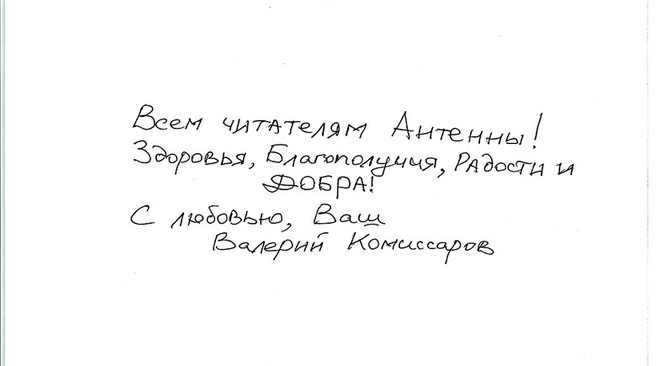 Всем читателям Антенны!
Здоровья, Благополучия, Радости и
ДОБРА!
С любовью, Ваш
Валерий Комиссаров